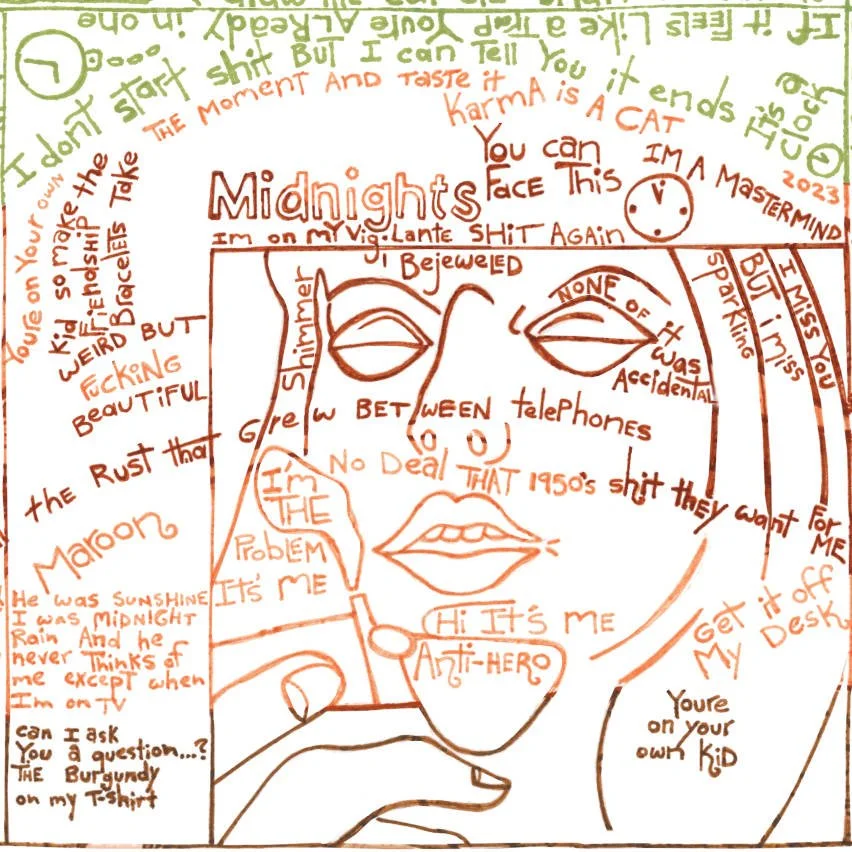 If it FEELS Like a Trap You're ALREADY in one
I dont start shit But I can Tell You it ends
It's a
CLOCK
THE MOMENT AND TASTE it
KarmA is A CAT
You can
FACE This
IM A MASTERMIND
2023
Midnights
Im on MY Vigilante SHIT AGAIN
Bejeweled
Youre on Your own
Kid so make the
Friendship
Bracelets Take
WEIRD BUT
FUCKING
BEAUTIFUL
Shimmer
NONE OF it
was
Accidental
sparkling
BUT i miss
I MISS YOU
the RUST that Grew BETWEEN telePhones
No Deal THAT 1950's shit they want For
ME
I'm
THE
PRobLEM
It's ME
Maroon
He was SUNSHINE
I was MIDNIGHT
Rain And he
never Thinks of
me except when
Im on TV
Hi It's ME
Anti-HERO
Get it off
My Desk
can I ask
You a question...?
THE Burgundy
on my T-Shirt
Youre
on your
own KiD